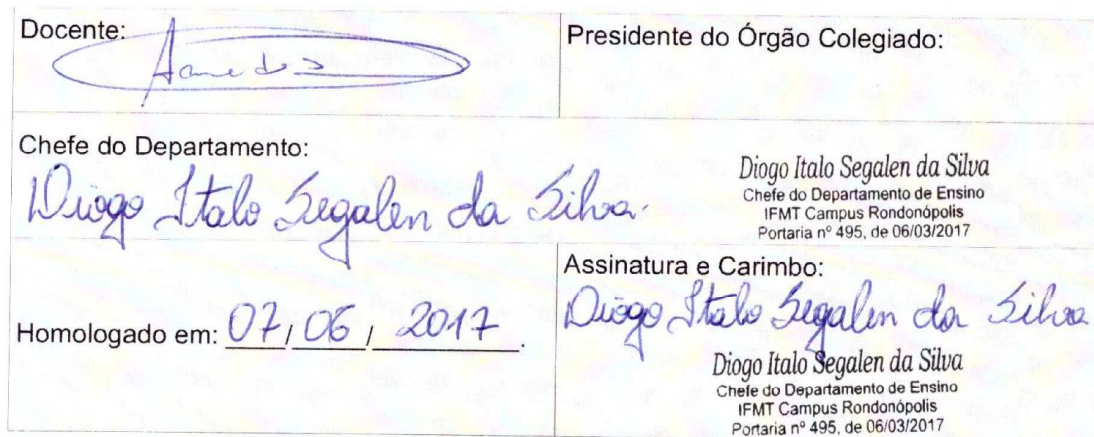 Docente:
Presidente do Órgão Colegiado:
Chefe do Departamento:
Diogo Italo Segalen da Silva.
Diogo Italo Segalen da Silva
Chefe do Departamento de Ensino
IFMT Campus Rondonópolis
Portaria nº 495, de 06/03/2017
Homologado em: 07/06/2017.
Assinatura e Carimbo:
Diogo Italo Segalen da Silva
Diogo Italo Segalen da Silva
Chefe do Departamento de Ensino
IFMT Campus Rondonópolis
Portaria nº 495, de 06/03/2017